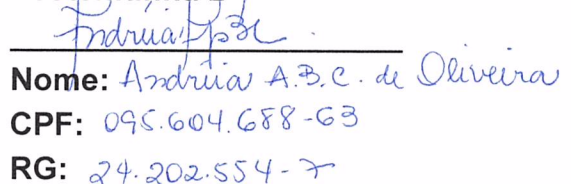 Nome: Andréia A.B.C. de Oliveira
CPF: 095.604.688-63
RG: 24.202.554-7